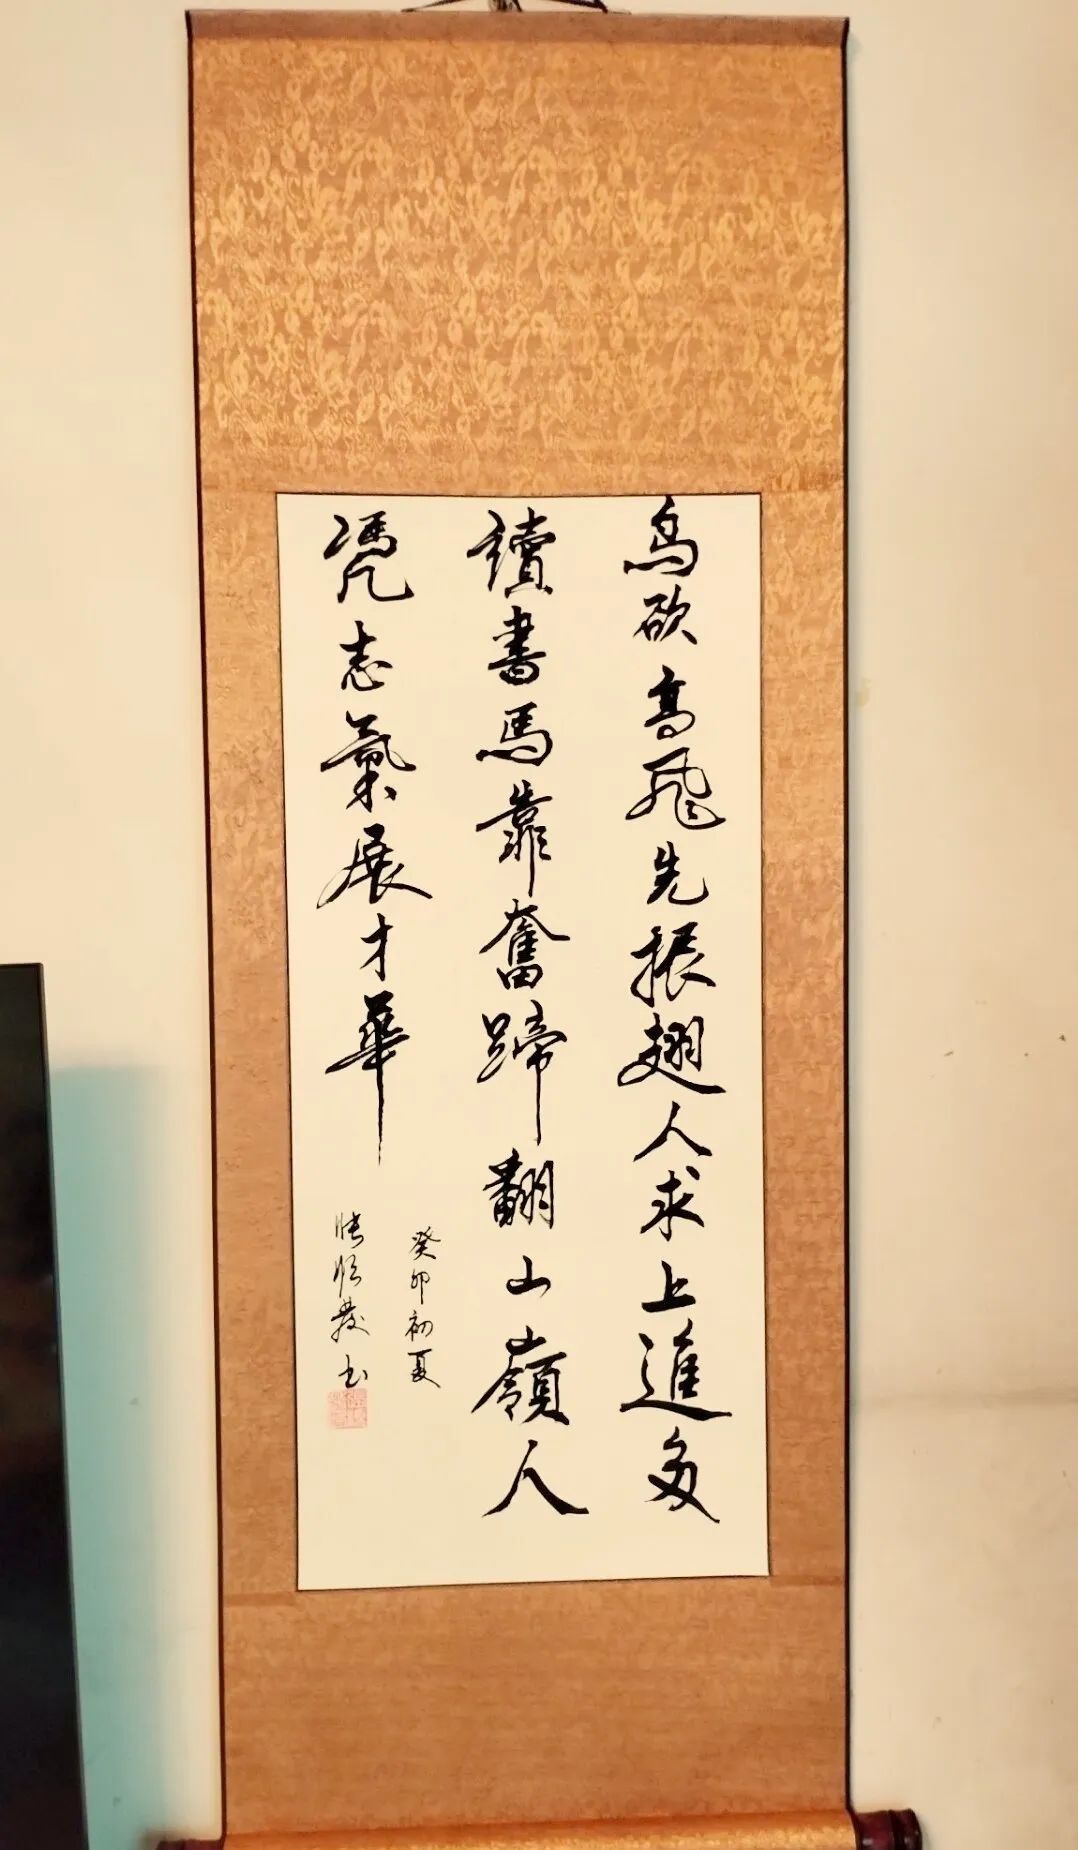 鳥欲高飛先振翅人求上進多
讀書馬靠奮蹄翻山嶺人
凴志氣展才華
癸卯初夏
张 书